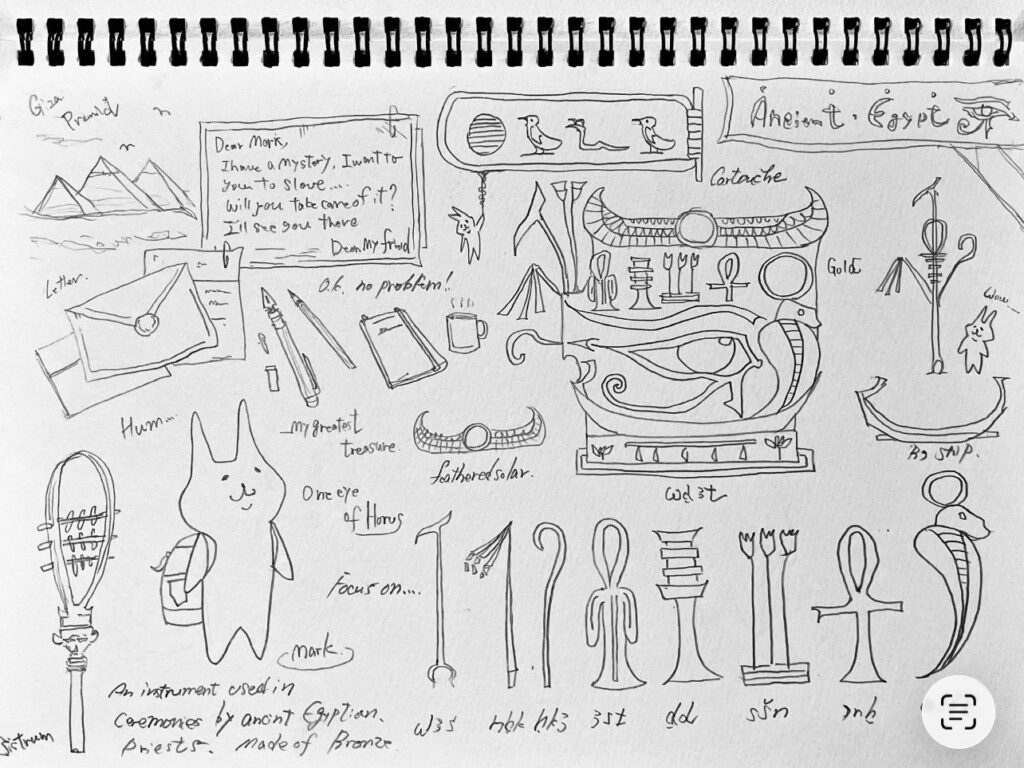 Giza
Pramid
Dear Mark,
I have a mystery, I want to
you to slove....
Will you take care of it?
I'll see you there
Dear My friend
Ancient. Egypt
Cartouche
Letter.
O.K. no problem!!
Gold
Wow...
Hum...
my greatest
treasure.
feathered solar.
wḏ3t
Ra ship.
One eye
of Horus
Focus on....
Mark.
An instrument used in
Ceremonies by ancint Egyptian.
priests. Made of Bronze.
Sistrum
w3s
ḥk3
3st
ḏd
sšn